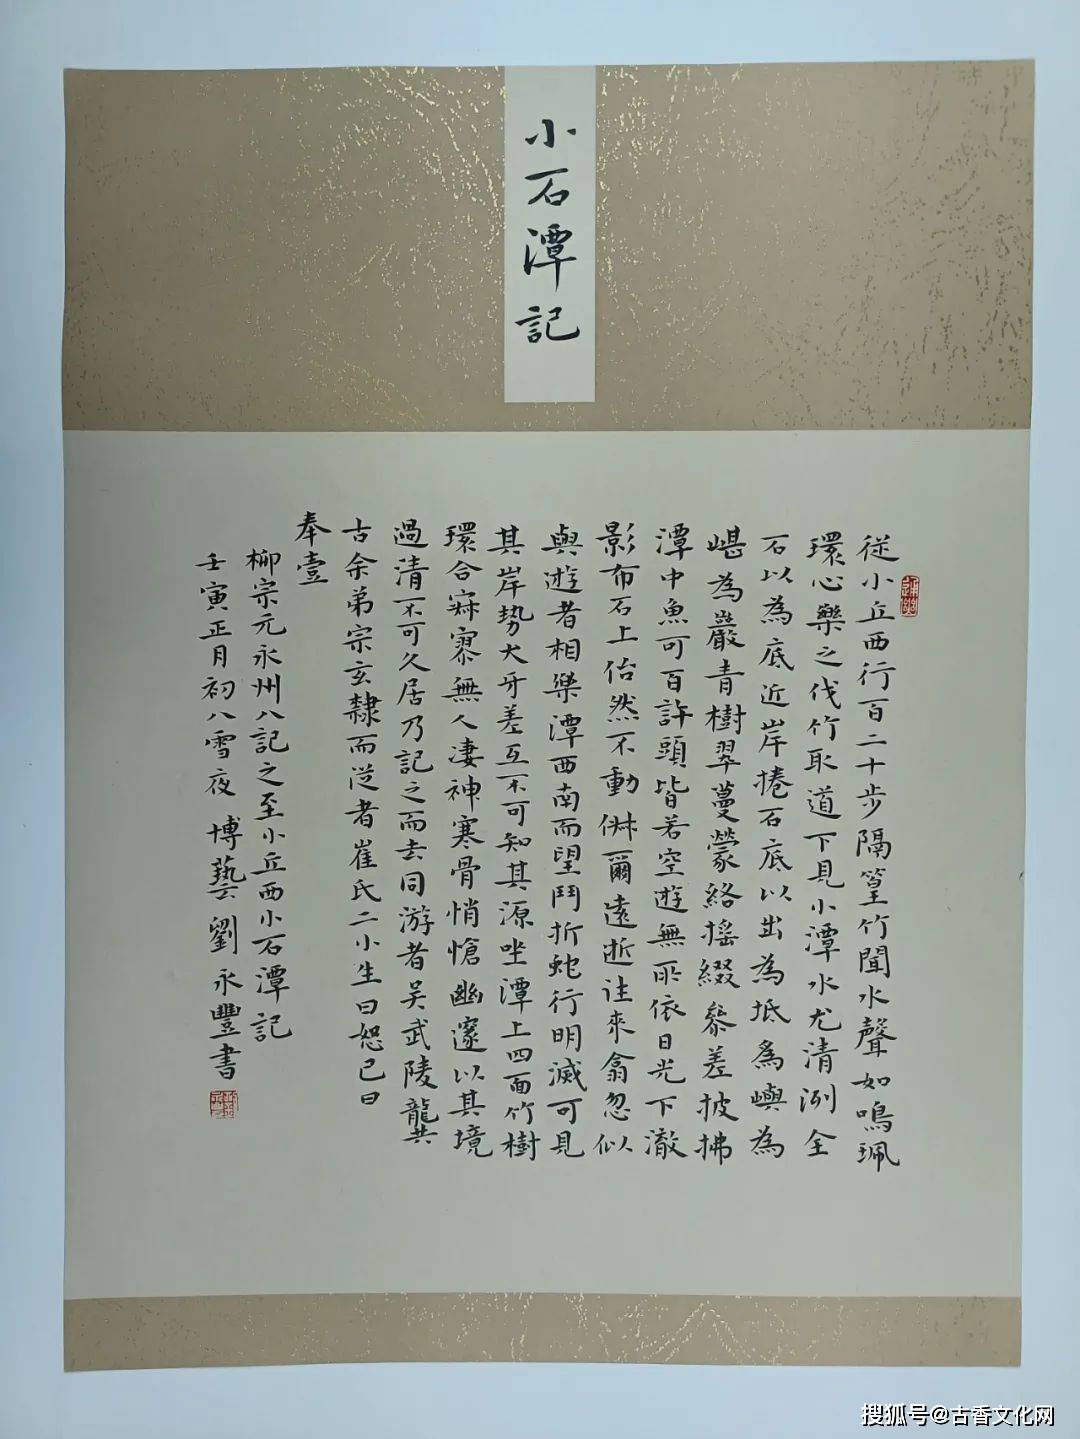 小石潭記
從小丘西行百二十步隔篁竹聞水聲如鳴珮
環心樂之伐竹取道下見小潭水尤清洌全
石以為底近岸捲石底以出為坻為嶼為
嵁為巖青樹翠蔓蒙絡搖綴參差披拂
潭中魚可百許頭皆若空遊無所依日光下澈
影布石上佁然不動俶爾遠逝往來翕忽似
與遊者相樂潭西南而望鬥折蛇行明滅可見
其岸勢犬牙差互不可知其源坐潭上四面竹樹
環合寂寥無人淒神寒骨悄愴幽邃以其境
過清不可久居乃記之而去同游者吴武陵龔
古余弟宗玄隸而從者崔氏二小生曰恕己曰
奉壹
柳宗元永州八記之至小丘西小石潭記
壬寅正月初八雪夜 博藝劉永豐書
搜狐号@古香文化网